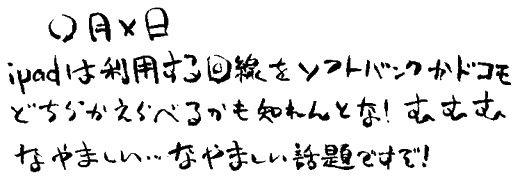 〇月×日
ipadは利用する回線をソフトバンクかドコモ
どちらかえらべるかも知れんとな!むむむ
なやましい…なやましい話題ですぞ!